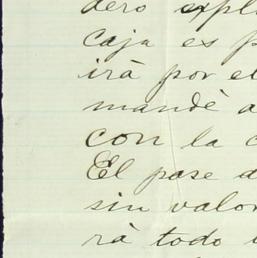 dero expl
caja es p
irà por el
mandè a
con la c
El pase d
sin valor
rà todo